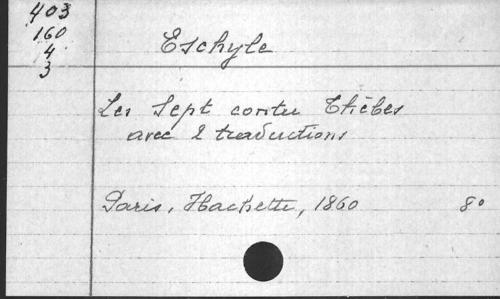 403
160
4
3
Eschyle
Les Sept contre Thèbes
avec 2 traductions
Paris, Hachette, 1860 8°